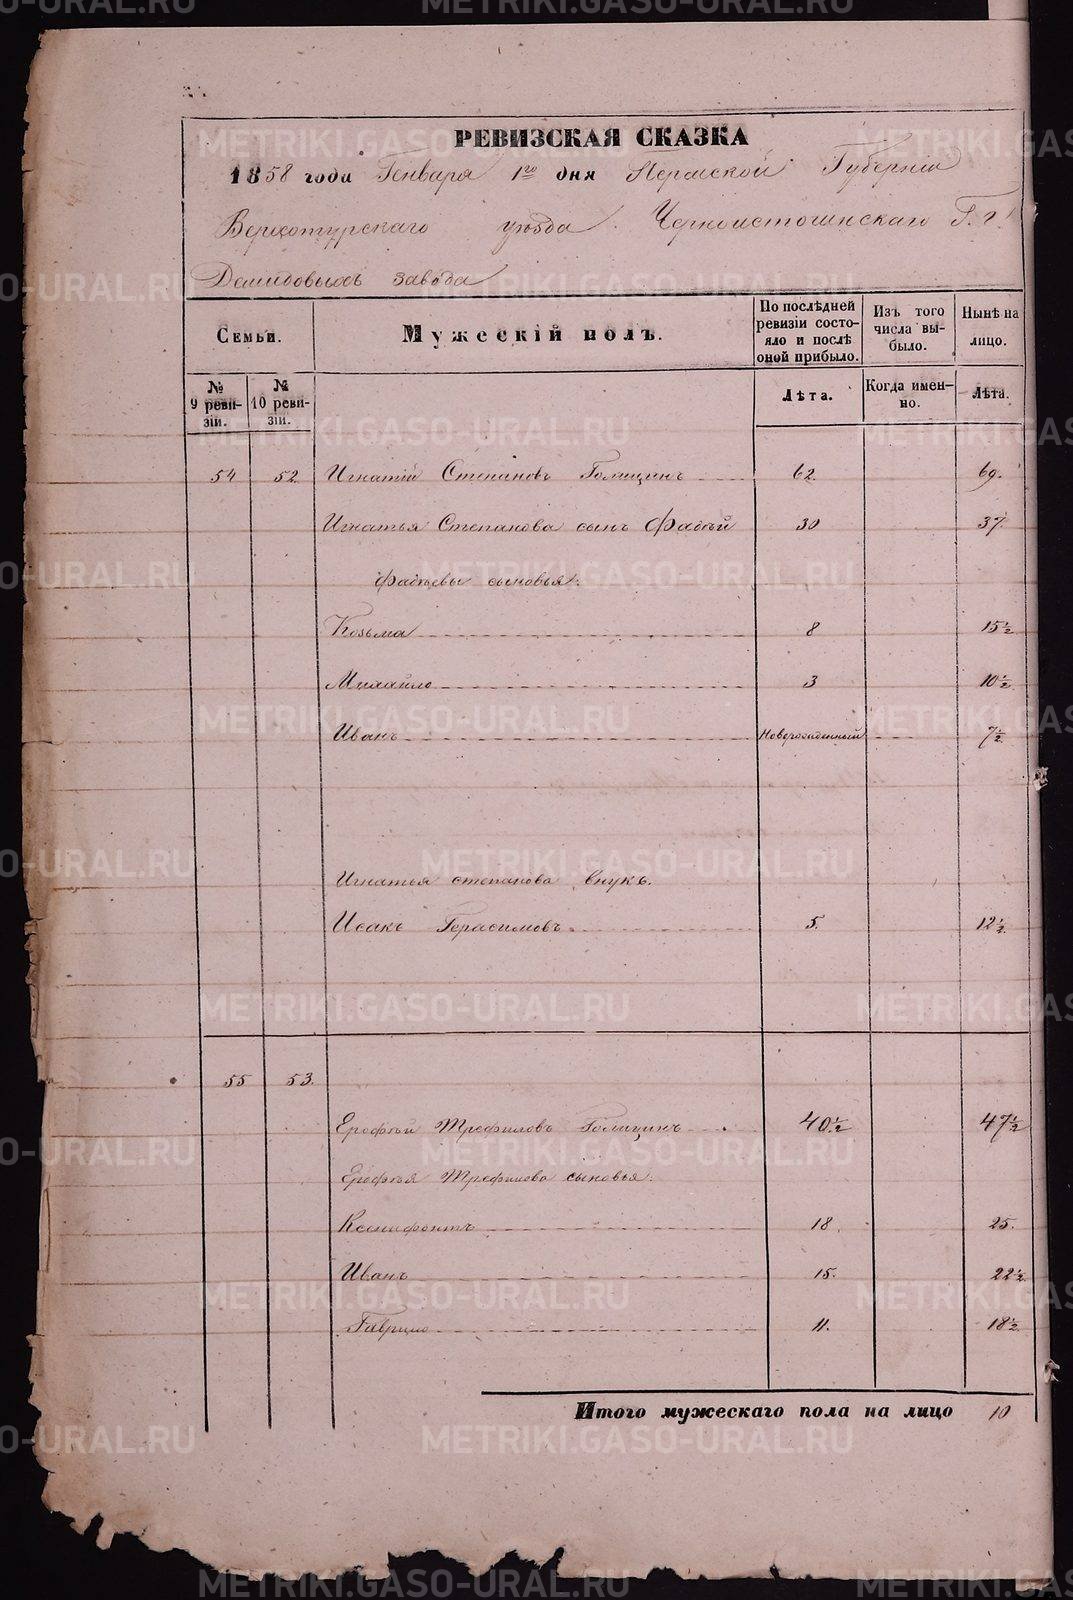 РЕВИЗСКАЯ СКАЗКА
1858 года Генваря 1го дня Пермской Губернии
Верхотурскаго уѣзда Черноисточинскаго Г. г.
Демидовыхъ завода
Семьи.
Мужескій полъ.
По послѣдней ревизіи состояло и послѣ оной прибыло.
Изъ того числа выбыло.
Нынѣ на лицо.
№ 9 ревизіи.
№ 10 ревизіи.
Лѣта.
Когда именно.
Лѣта.
54 52 Игнатій Степановъ 62. 69.
Игнатья Степанова сынъ Фадѣй 30 37.
Фадѣевы сыновья:
Козьма 8 15 ½
Михайло 3 10 ½
Иванъ Новорожденный 7 ½
Игнатья степанова внукъ.
Исакъ Герасимовъ 5. 12 ½
55 53.
Ерофѣй Трефиловъ 40 ½ 47 ½
Ерофѣя Трефилова сыновья:
Ксенифонтъ 18. 25.
Иванъ 15. 22 ½
Гаврило 11. 18 ½
Итого мужескаго пола на лицо 10
METRIKI.GASO-URAL.RU